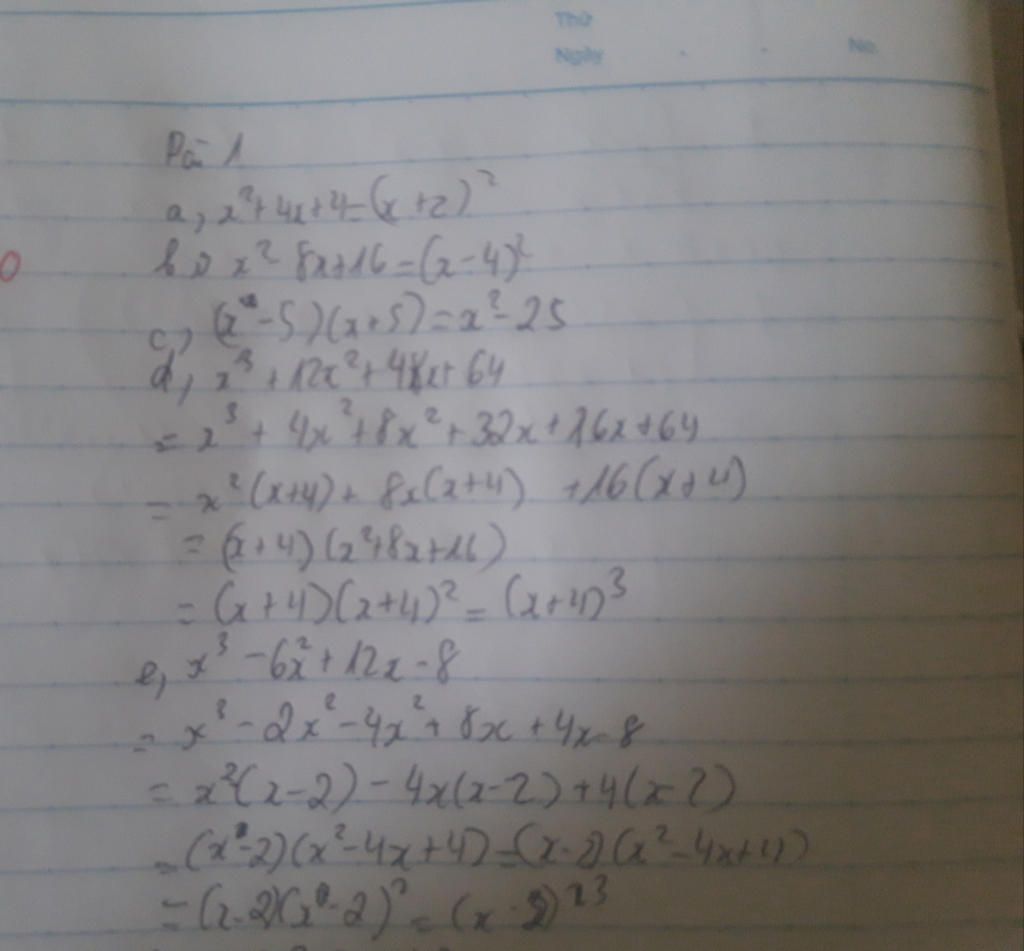 Thứ
Ngày . . No.
Bài 1
a, x²+4x+4=(x+2)²
b, x² 8x+16=(x-4)²
c, (x-5)(x+5)=x²-25
d, x³+12x²+48x+64
= x³ + 4x²+8x²+32x+16x+64
= x²(x+4)+ 8x(x+4) +16(x+4)
= (x+4)(x²+8x+16)
= (x+4)(x+4)² = (x+4)³
e, x³ -6x²+12x-8
= x³ -2x²-4x²+8x+4x-8
= x²(x-2)-4x(x-2)+4(x-2)
= (x-2)(x²-4x+4)=(x-2)(x²-4x+4)
= (x-2)(x-2)² = (x-2)³